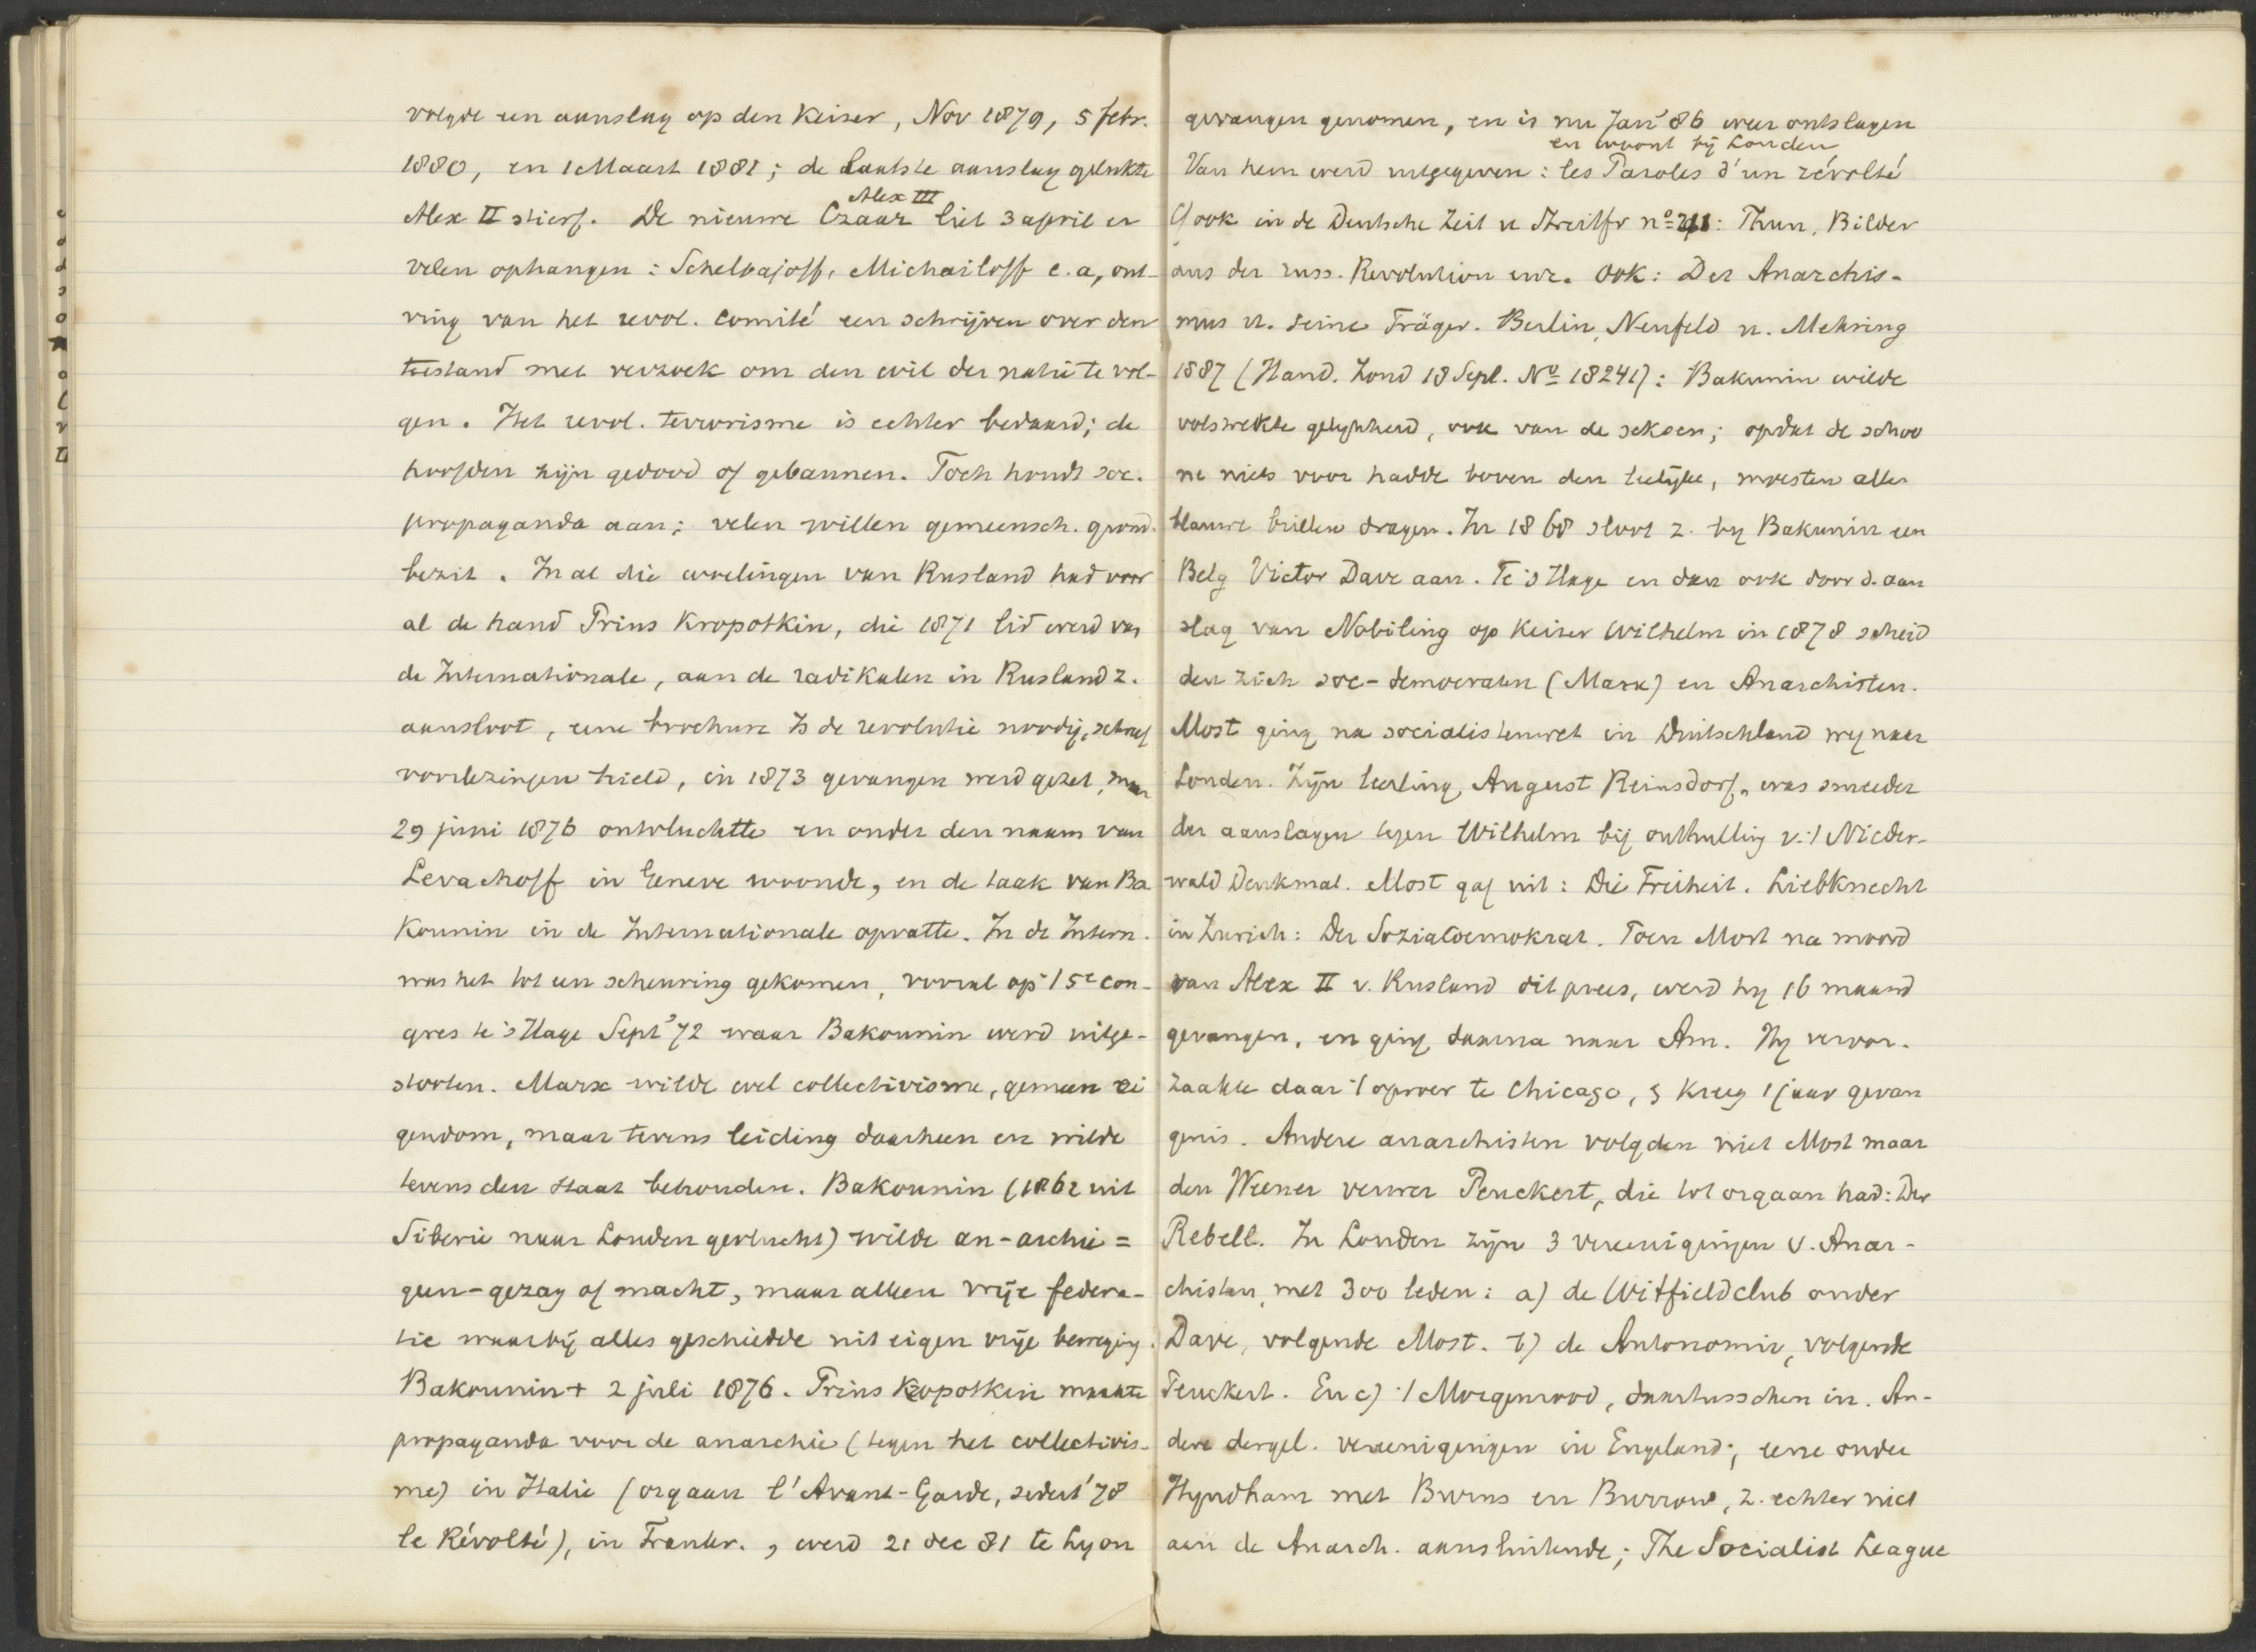 volgde een aanslag op den Keiser, Nov 1879, 5 febr.
1880, en 1 Maart 1881; de laatste aanslag gelukte
Alex III
Alex II stierf. De nieuwe Czaar liet 3 april er
velen ophangen: Schelbajoff, Michailoff e.a, ont-
ving van het revol. comité een schrijven over den
toestand met verzoek om den wil der natie te vol-
gen. Het revol. terrorisme is echter bedaard; de
hoofden zijn gedood of gebannen. Toch houdt soc.
propaganda aan; velen willen gemeensch. grond.
bezit. In al die woelingen van Rusland had voor
al de hand Prins Kropotkin, die 1871 lid werd van
de Internationale, aan de radikalen in Rusland z.
aansloot, eene brochure Is de revolutie noodig, schreef
voorlezingen hield, in 1873 gevangen werd gezet, maar
29 juni 1876 ontvluchtte en onder den naam van
Levachoff in Geneve woonde, en de taak van Ba
kounin in de Internationale opvatte. In de Intern.
was het tot een scheuring gekomen, vooral op 't 5e con-
gres te 's Hage Sept '72 waar Bakounin werd uitge-
stooten. Marx wilde wel collectivisme, gemeen ei
gendom, maar tevens leiding daarheen en wilde
tevens den staat behouden. Bakounin (1862 uit
Siberie naar Londen gevlucht) wilde an-archie =
geen-gezag of macht, maar alleen vrije federa-
tie waarbij alles geschiedde uit eigen vrije beweging.
Bakounin + 2 juli 1876. Prins Kropotkin maakte
propaganda voor de anarchie (tegen het collectivis-
me) in Italie (orgaan l'Avant-Garde, sedert '78
le Révolté), in Frankr., werd 21 dec 81 te Lyon
gevangen genomen, en is nu Jan '86 weer ontslagen
en woont bij Londen
Van hem werd uitgegeven: les Paroles d'un révolté
Cf ook in de Deutsche Zeit u Streitfr no : Thun, Bilder
aus der russ. Revolution enz. Ook: Der Anarchis-
mus u. seine Träger. Berlin, Neufeld u. Mehring
1887 (Hand. Zond 18 Sept. No 18241): Bakunin wilde
volstrekte gelijkheid, ook van de seksen; opdat de schoo
ne niets voor hadde boven den leelijke, moesten allen
blauwe brillen dragen. In 1868 sloot z. by Bakunin een
Belg Victor Dave aan. Te 's Hage en dan ook door d. aan
slag van Nobiling op Keiser Wilhelm in 1878 scheid
den zich soc-democraten (Marx) en Anarchisten.
Most ging na socialistenwet in Duitschland weg naar
Londen. Zijn leerling, August Reinsdorf, was smeeder
der aanslagen tegen Wilhelm bij onthulling v. 't Nieder-
wald Denkmal. Most gaf uit: Die Freiheit. Liebknecht
in Zurich: Der Sozialdemokrat. Toen Most na moord
van Alex II v. Rusland dit prees, werd hy 16 maand
gevangen, en ging daarna naar Am. Hy veroor-
zaakte daar 't oproer te Chicago, & kreeg 1 jaar gevan
genis. Andere anarchisten volgden niet Most maar
den Weener verver Peuckert, die tot orgaan had: Der
Rebell. In Londen zijn 3 vereenigingen v. Anar-
chisten, met 300 leden: a) de Witfieldclub onder
Dave, volgende Most. b) de Autonomie, volgende
Peuckert. En c) 't Morgenrood, daartusschen in. An-
dere dergel. vereenigingen in Engeland; eene onder
Hyndham met Burns en Burrow, z. echter niet
aan de Anarch. aansluitende; The Socialist League